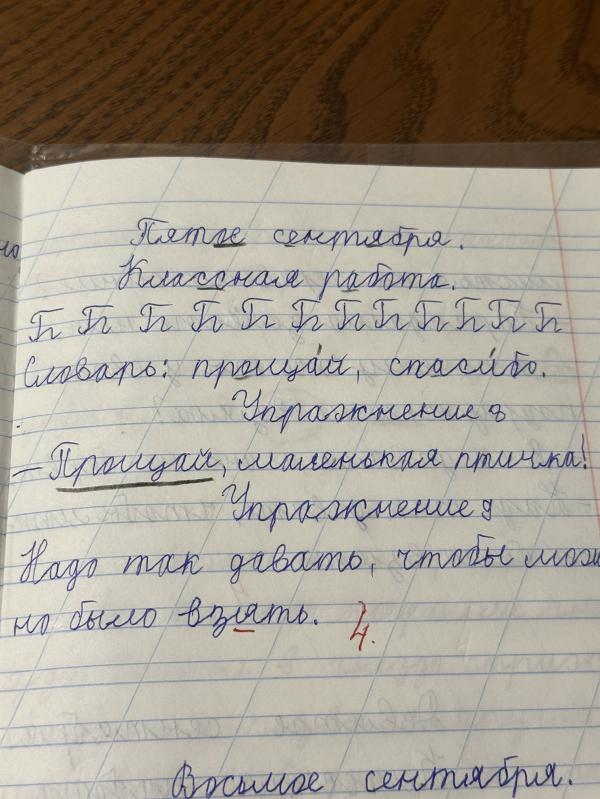 Пятое сентября.
Классная работа.
Б Б Б Б Б Б Б Б Б Б Б Б
Словарь: прощай, спасибо.
Упражнение 8
— Прощай, маленькая птичка!
Упражнение 9
Надо так давать, чтобы мож
но было взять.
4.
Восьмое сентября.